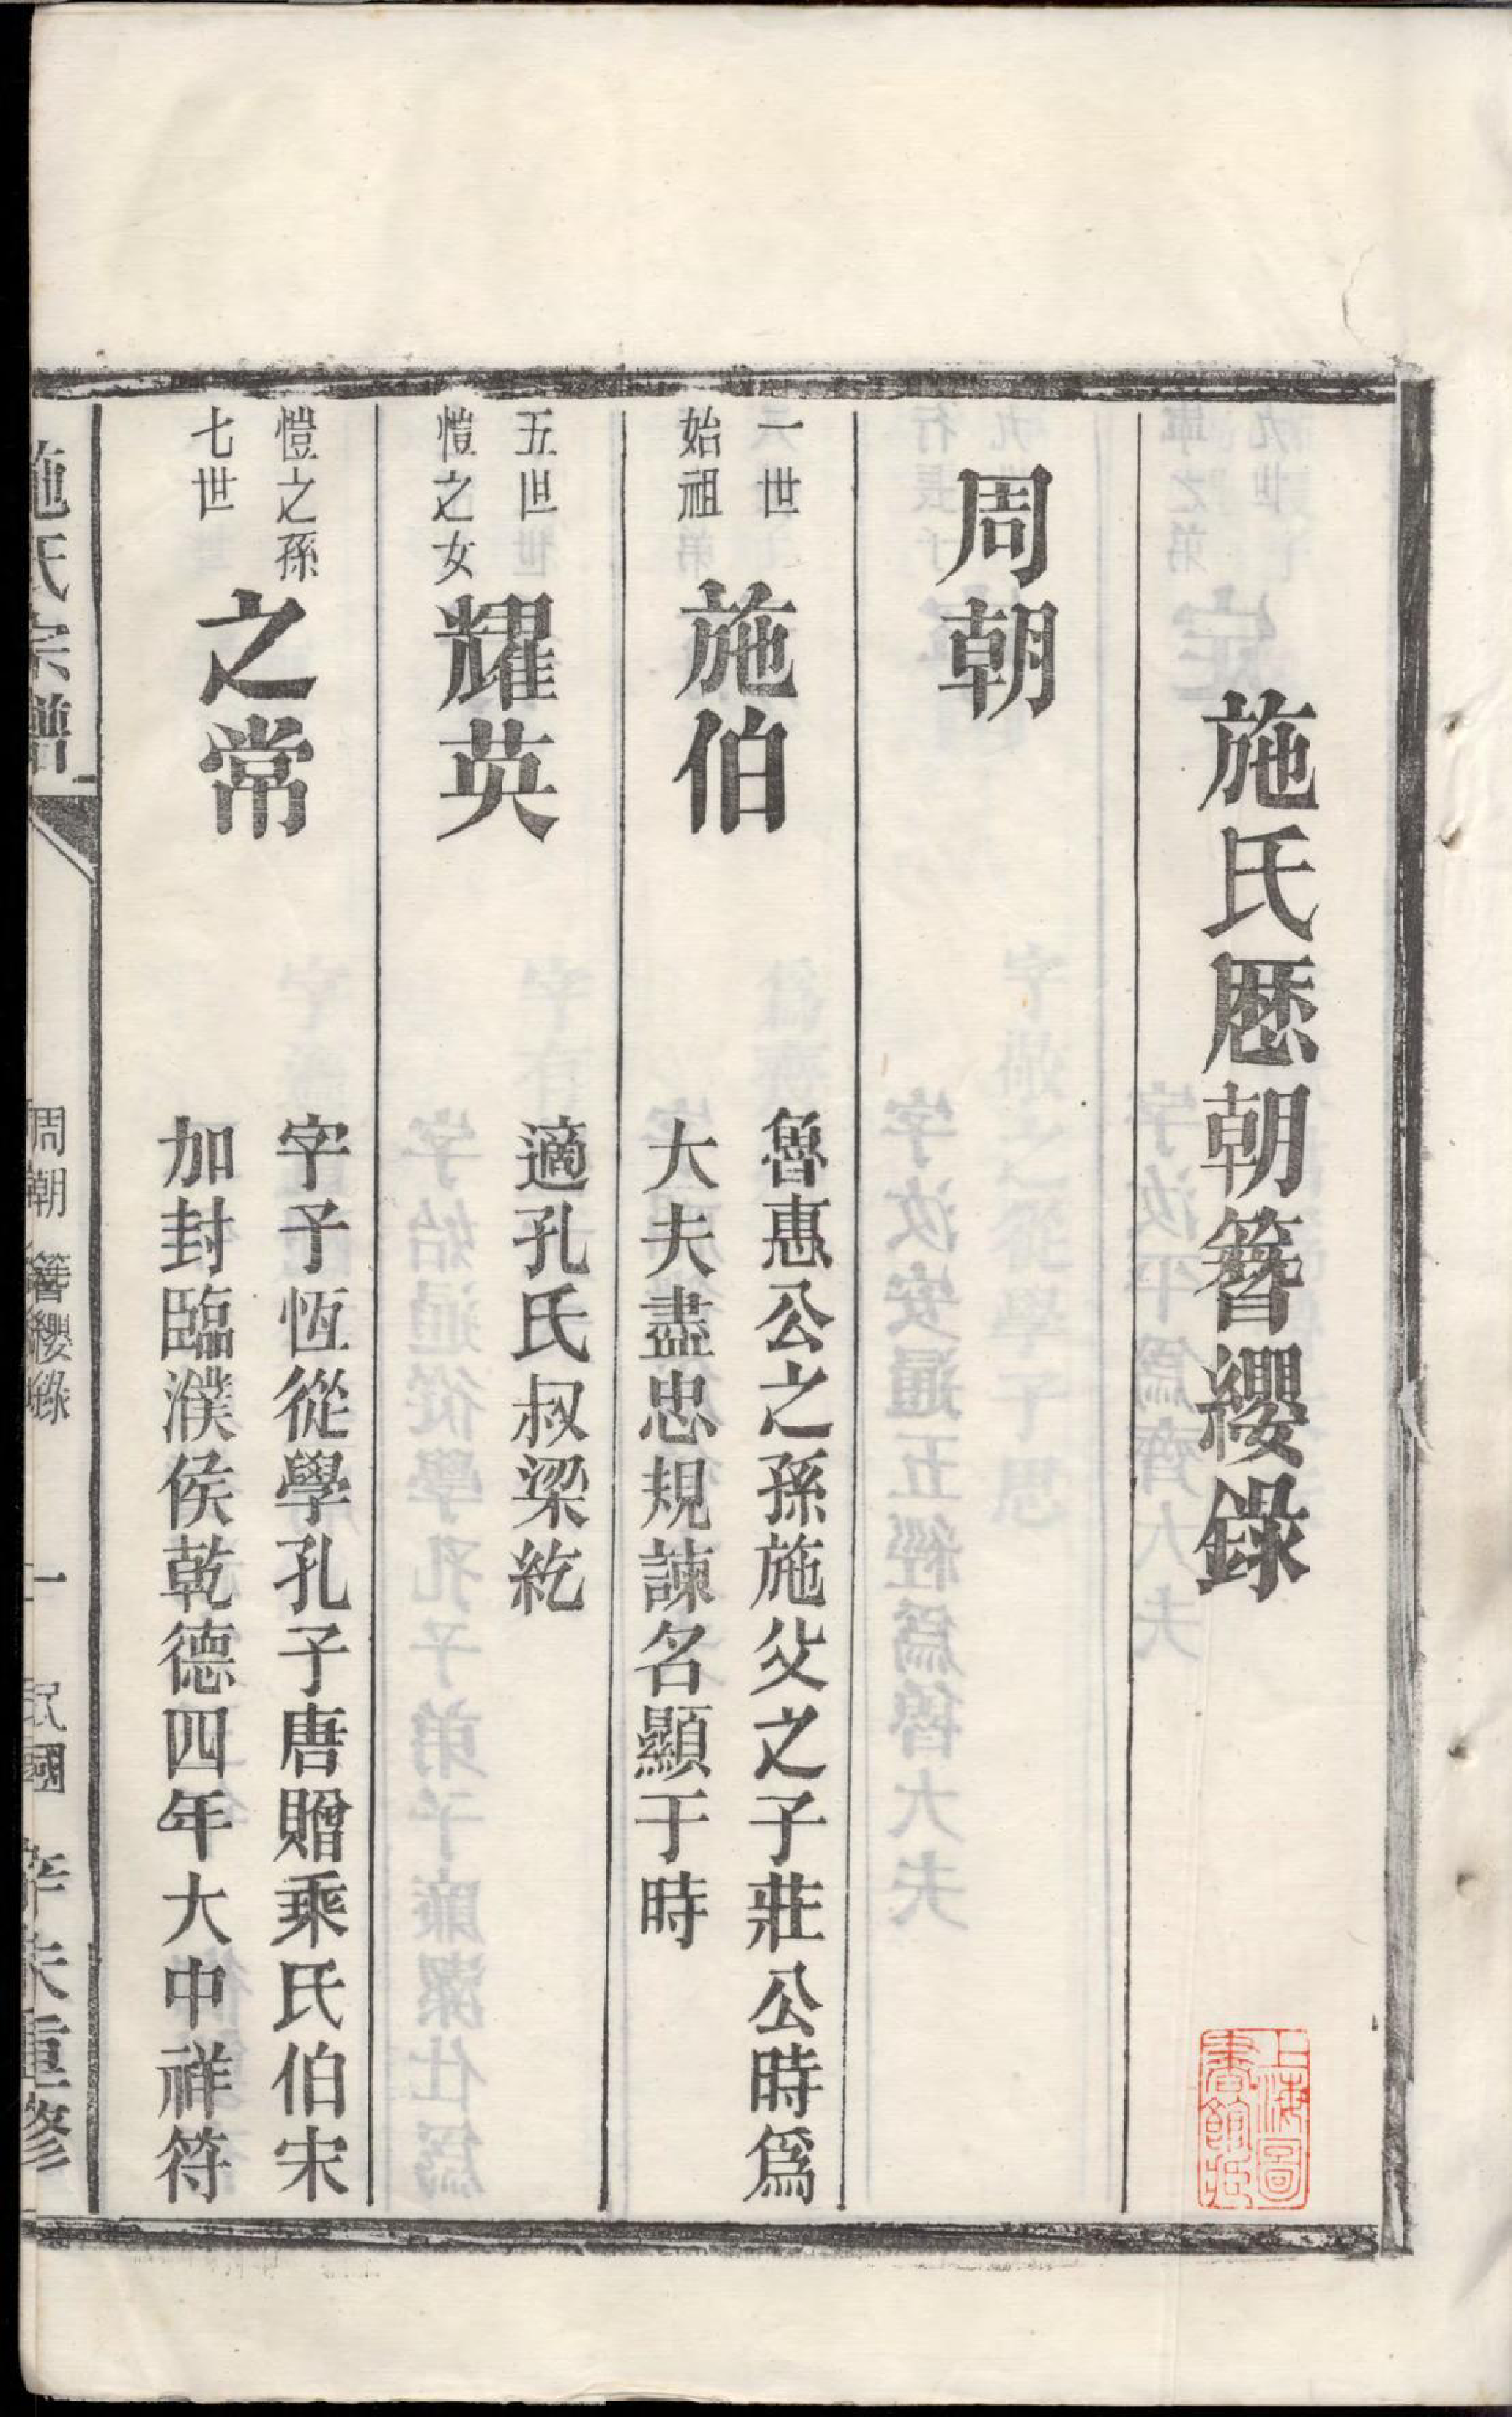 施氏厯朝簪纓錄
上海圖
書館藏
周朝
一世
始祖
施伯
魯惠公之孫施父之子莊公時爲
大夫盡忠規諫名顯于時
五世
愷之女
耀英
適孔氏叔梁紇
愷之孫
七世
之常
字子恆從學孔子唐贈乘氏伯宋
加封臨濮侯乾德四年大中祥符
施氏宗譜
周朝 簪纓錄
一
民國
辛未重修